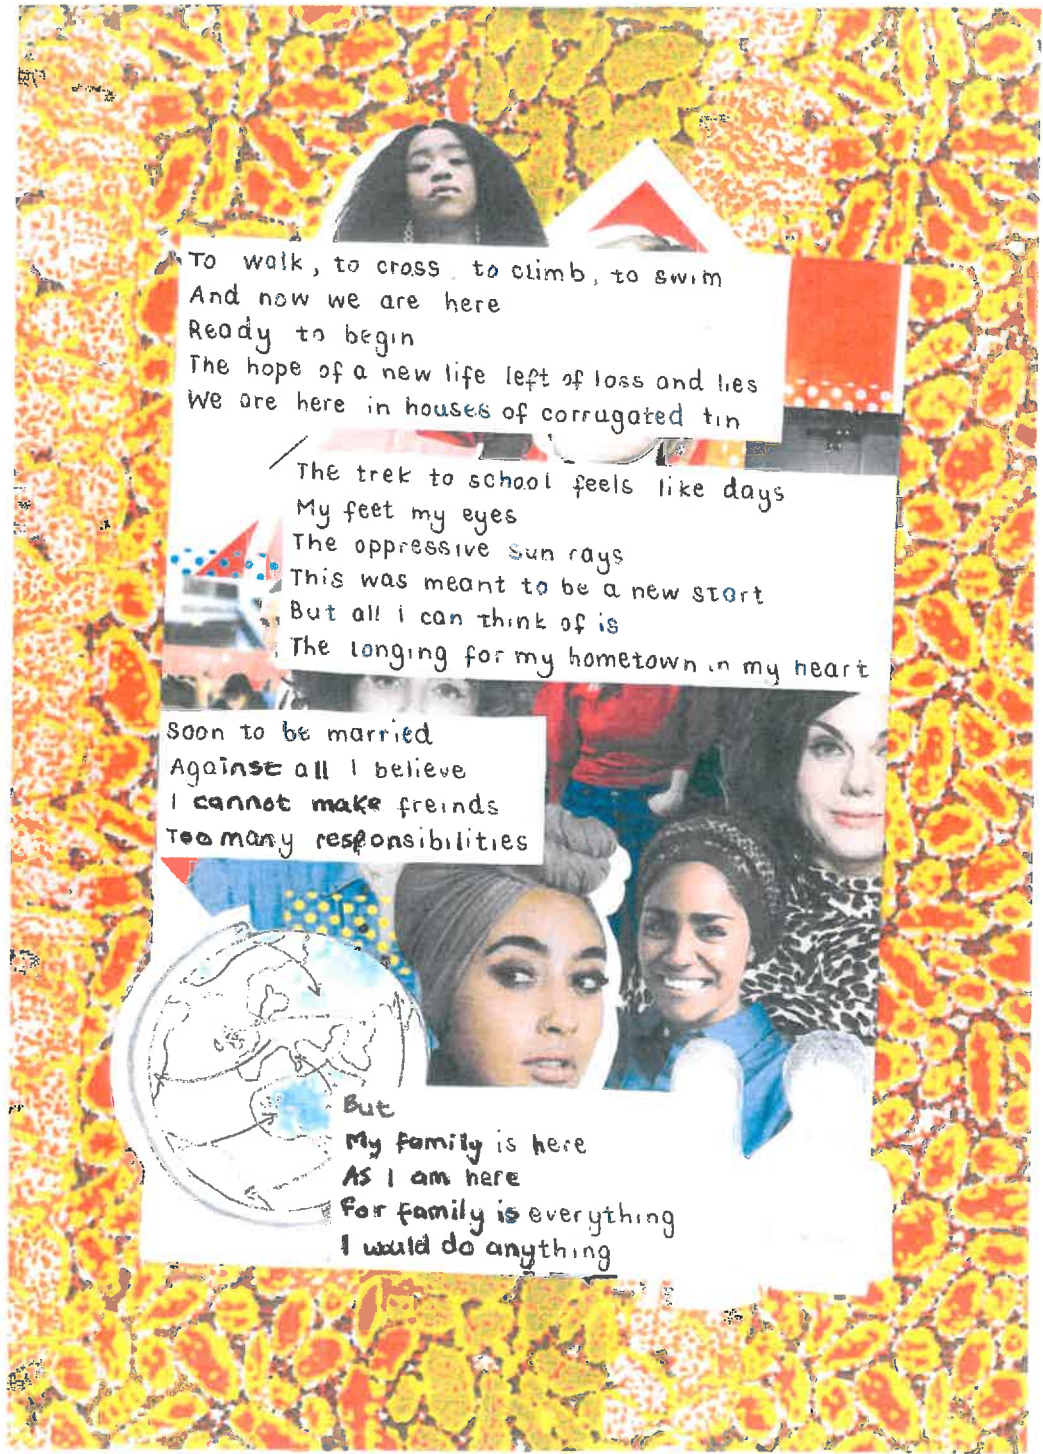 To walk, to cross, to climb, to swim
And now we are here
Ready to begin
The hope of a new life left of loss and lies
We are here in houses of corrugated tin
The trek to school feels like days
My feet my eyes
The oppressive sun rays
This was meant to be a new start
But all i can think of is
The longing for my hometown in my heart
Soon to be married
Against all I believe
I cannot make freinds
Too many responsibilities
But
My family is here
AS I am here
For family is everything
I would do anything